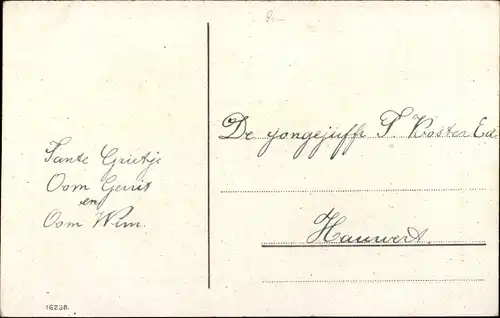 2-
Tante Grietje
Oom Gerrit
en
Oom Wim.
De jongejuffr T Koster Ed.
Hauwert.
16238.